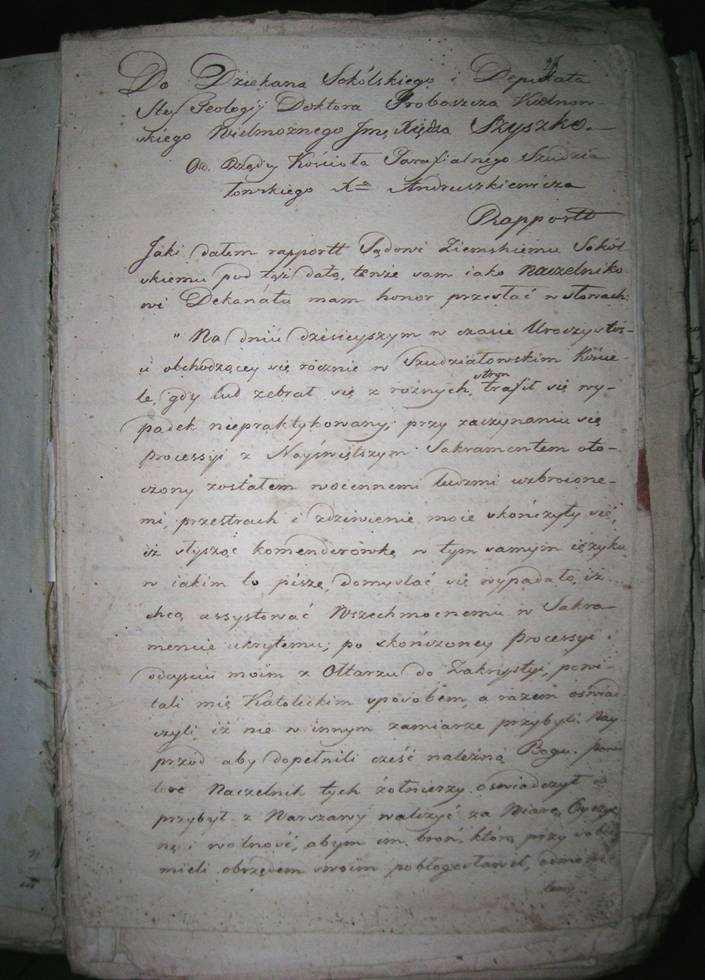 Do Dziekana Sokólskiego i Deputata
Stej Teologij Doktora Proboszcza
skiego Wielmożnego Jmę Xiędza Szyszko.
Od Rządcy Kościoła Parafialnego Szudzia
łowskiego Andruszkiewicza
Rapportt
Jaki dałem rapportt Sądowi Ziemskiemu Sokól
skiemu pod tąż datą, tenże sam iako Naczelniko
wi Dekanatu mam honor przesłać w słowach:
„Na dniu dzisieyszym w czasie Uroczystoś-
ci obchodzącey się rocznie w Szudziałowskim Koście-
le, gdy lud zebrał się z różnych stron trafił się wy-
padek niepraktykowany; przy zaczynaniu się
processyi z Nayświętszym Sakramentem oto-
czony zostałem woiennemi ludzmi uzbroione-
mi, przestrach i zdziwienie moie skończyły się,
iż słysząc komenderówkę w tym samym ięzyku
w iakim to piszę, domyślać się wypadało, iż
chcą assystować Wszechmocnemu w Sakra-
mencie ukrytemu; po skończoney processyi i
odeyściu moim z Ołtarza do Zakrystyi, powi-
tali mię Katolickim sposobem, a razem oświad
czyli, iż nie w innym zamiarze przybyli. Nay
przód aby dopełnili cześć należną Bogu.
Naczelnik tych żołnierzy oświadczył iż
przybył z Warszawy walczyć za Wiarę, Oyczyz
nę i wolność, abym im broń, którą przy sobie
mieli obrzędem swoim pobłogosławił,